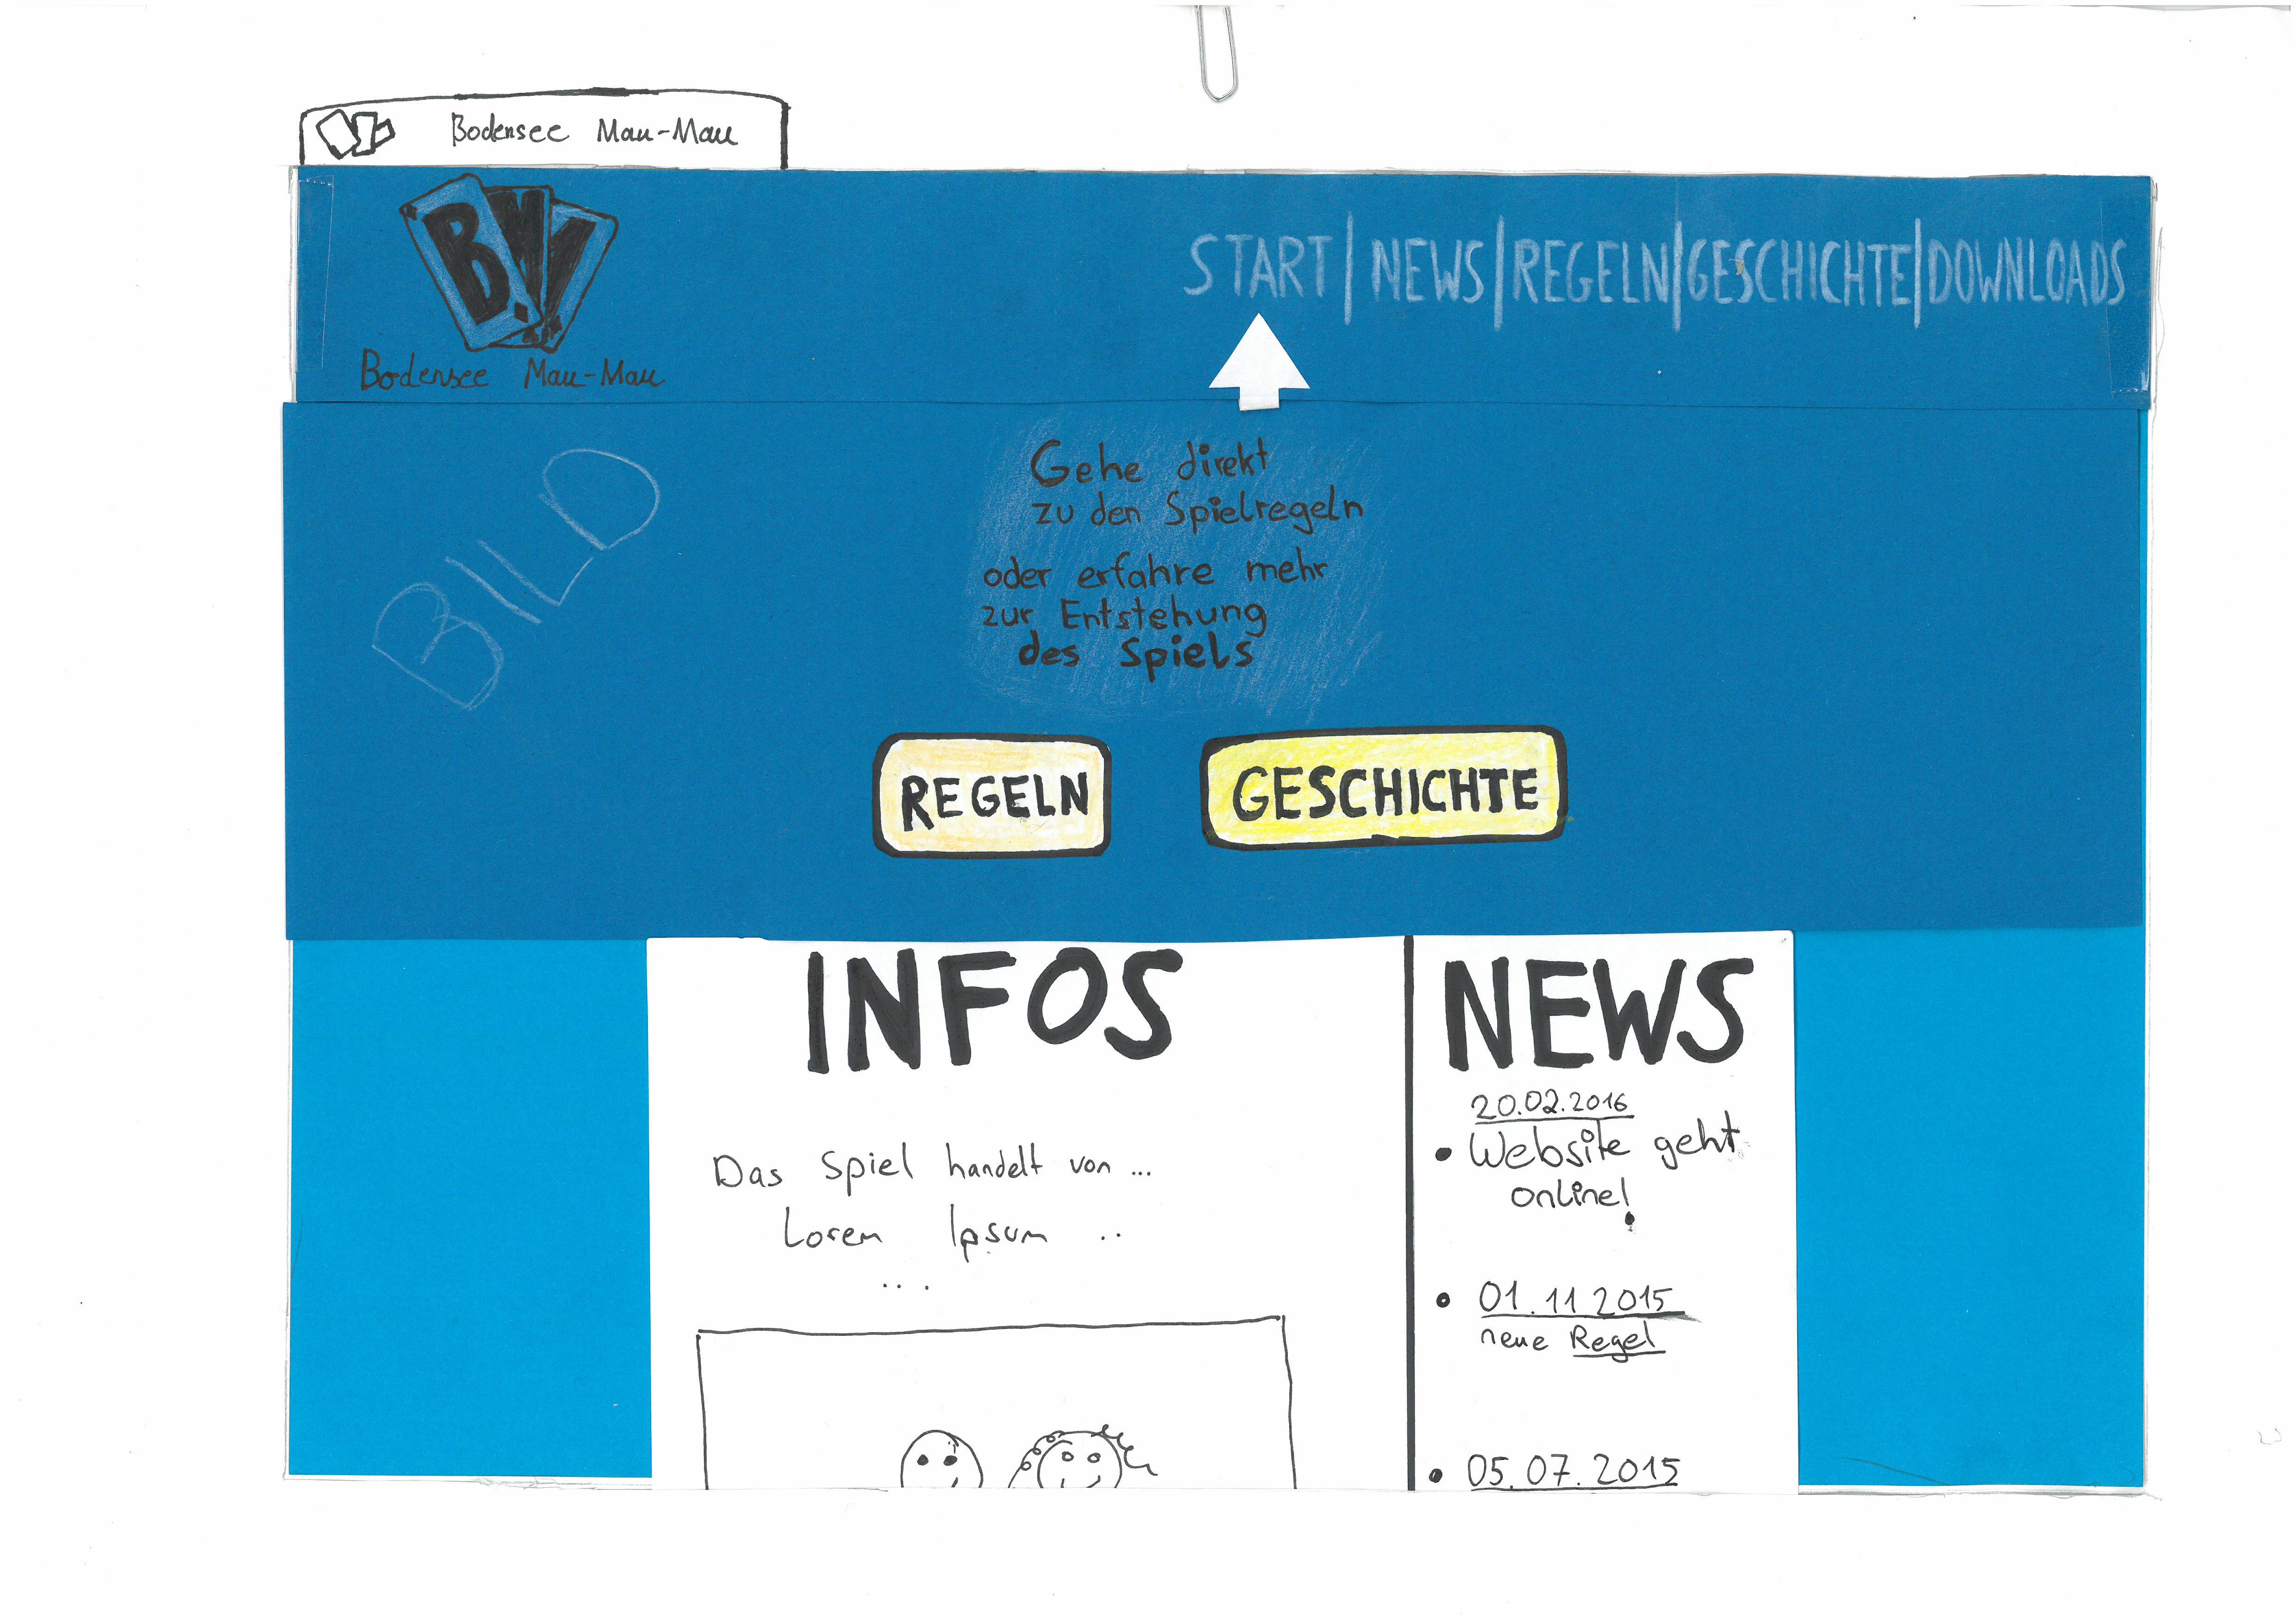 Bodensee Mau-Mau
B.M
Bodensee Mau-Mau
START | NEWS | REGELN | GESCHICHTE | DOWNLOADS
BILD
Gehe direkt
zu den Spielregeln
oder erfahre mehr
zur Entstehung
des Spiels
REGELN
GESCHICHTE
INFOS
Das Spiel handelt von ...
Lorem Ipsum ..
...
NEWS
20.02.2016
• Website geht
online!
• 01.11 2015
neue Regel
• 05.07.2015